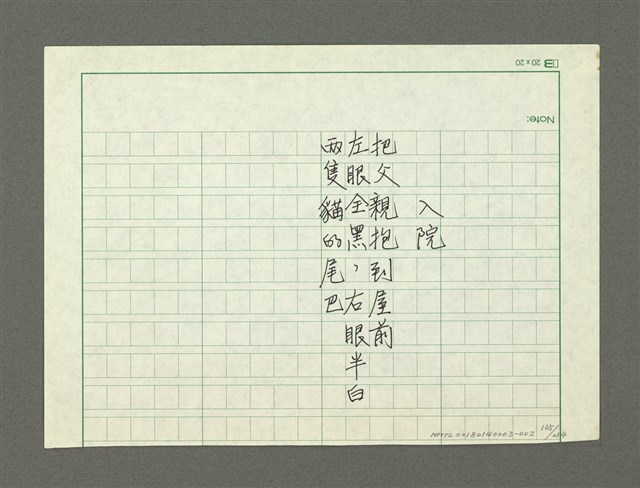 入院
把父親抱到屋前
左眼全黑，右眼半白
兩隻貓的尾巴
Note:
20 x 20
NMTL20180140003-002